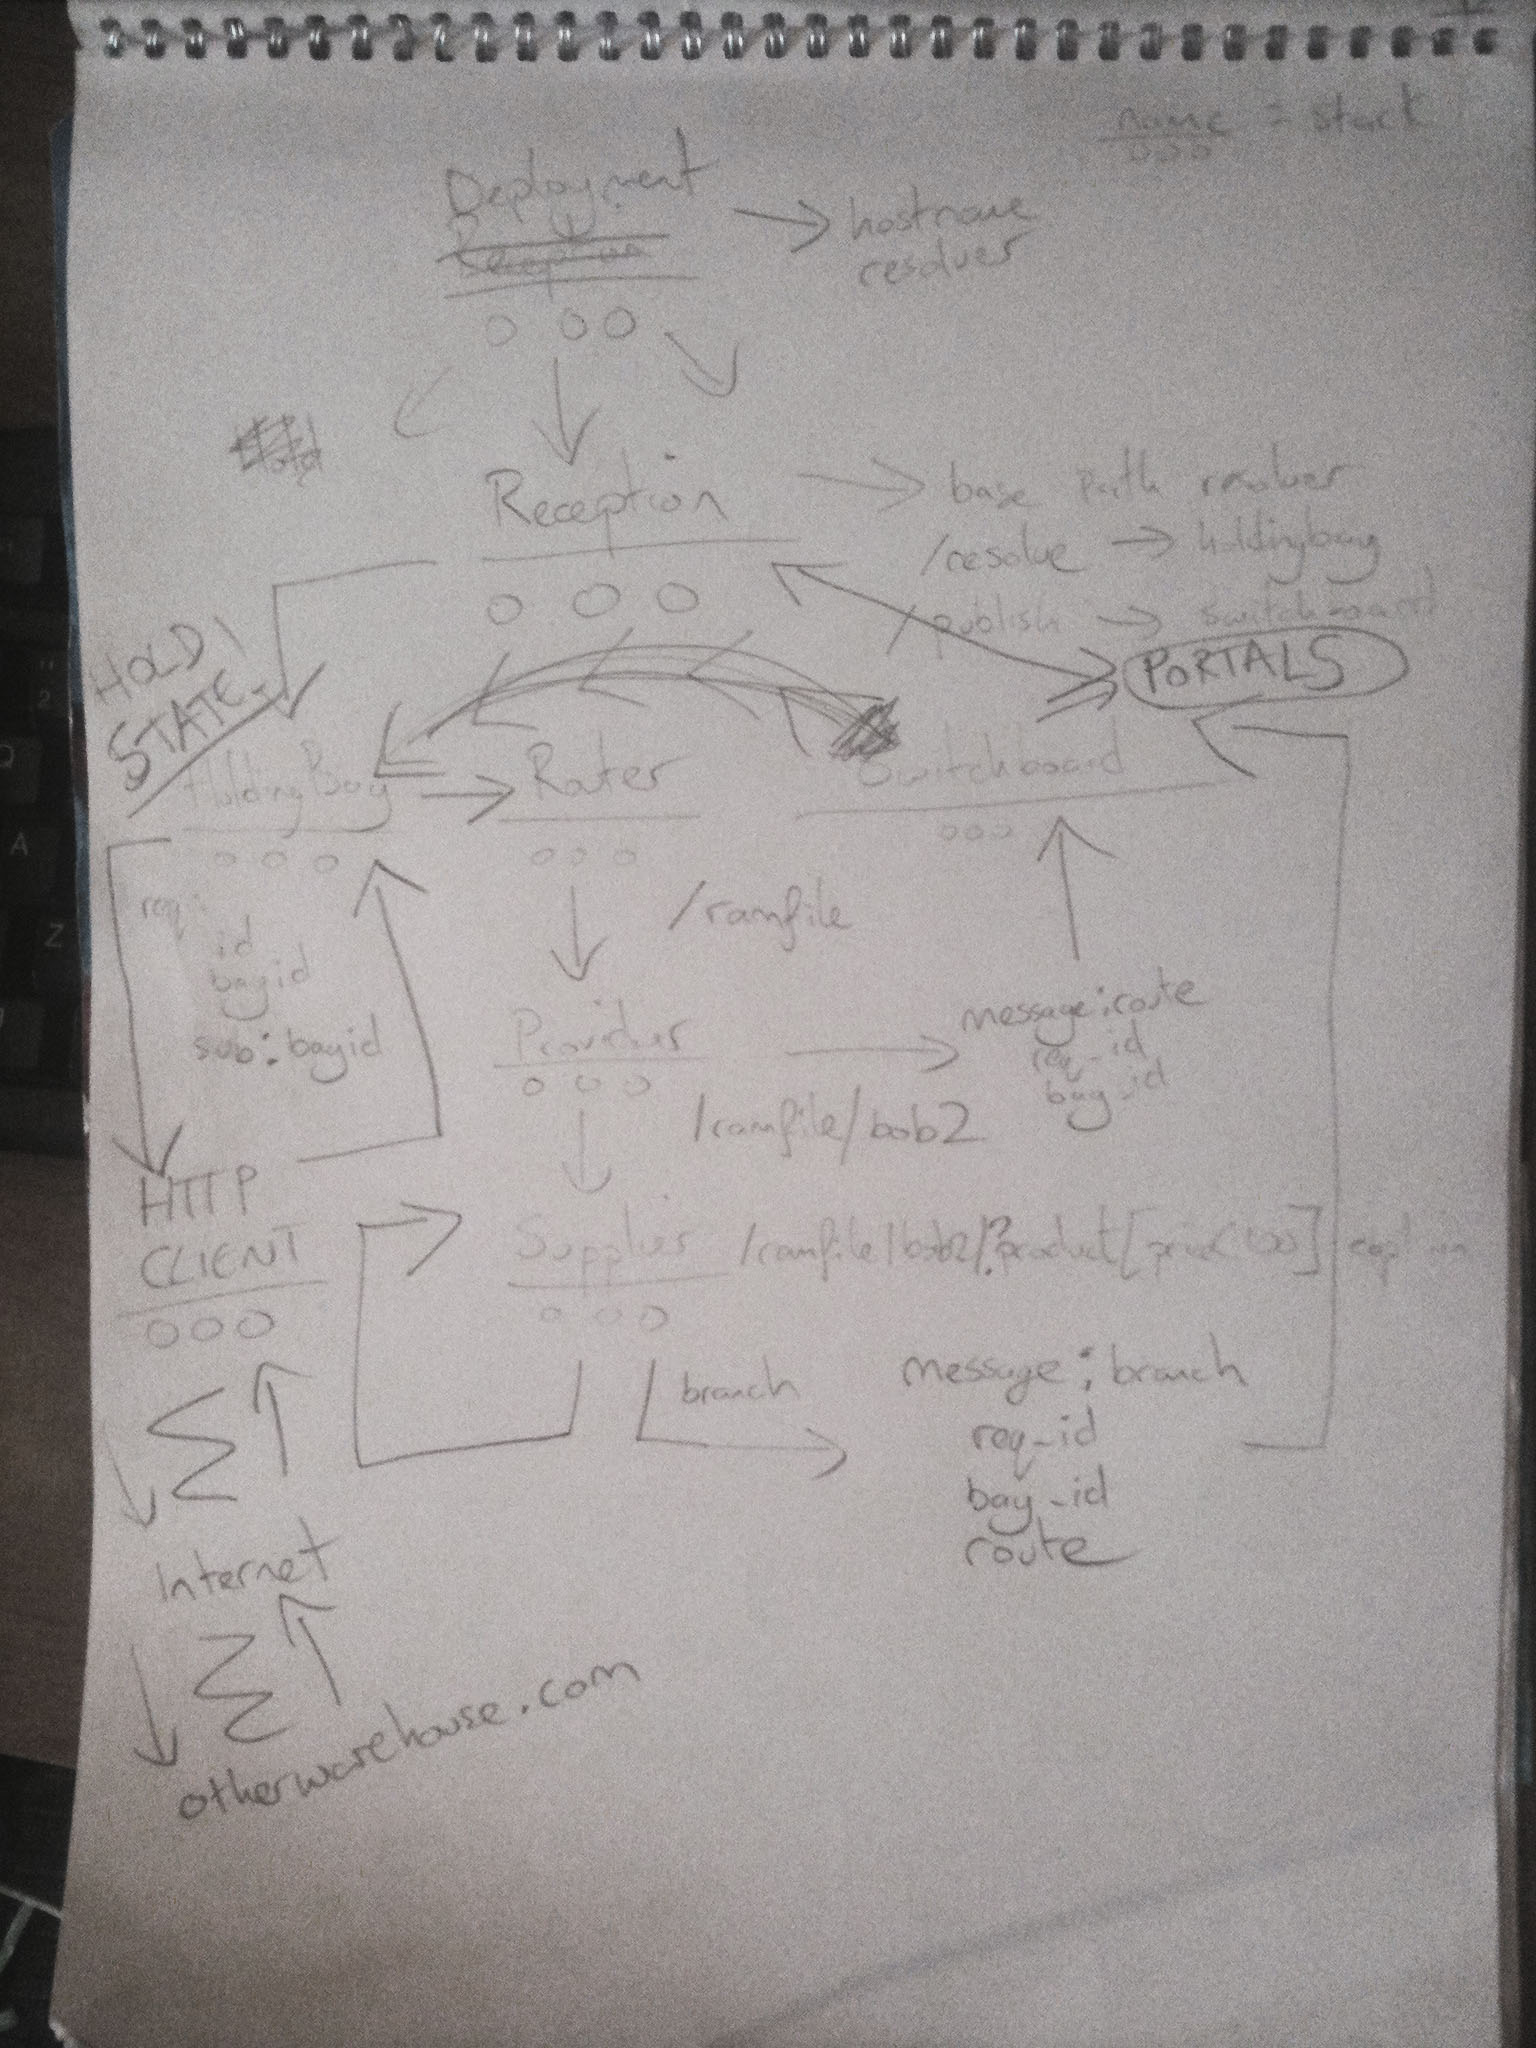 name = stack
Deployment
Reception
hostname
resolver
Reception
base path resolver
/resolve → holdingbay
/publish → switchboard
HOLD!
STATE
PORTALS
HoldingBay
Router
Switchboard
req:
id
bayid
sub:bayid
/ramfile
Provider
message:route
req_id
bay_id
/ramfile/bob2
HTTP
CLIENT
Supplier
/ramfile/bob2/?product[price<100]
branch
message:branch
req_id
bay_id
route
Internet
otherwarehouse.com